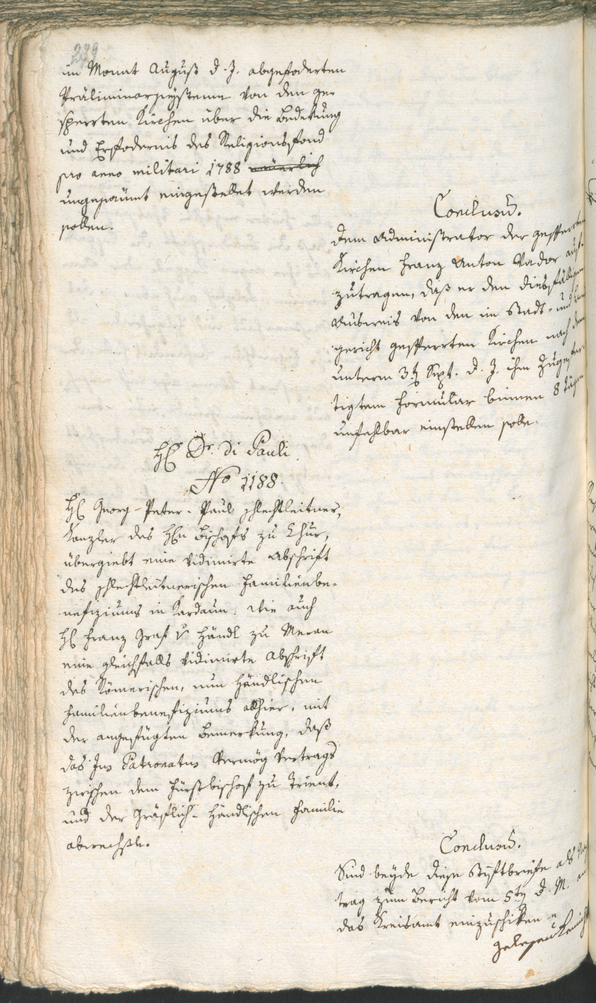 239
im Monat August d. J. abgeforderten
Präliminarsysteme von den ge-
sperrten Kirchen über die Bedekung
und Erforderniß des Religionsfond
pro anno militari 1788
ungesäumt eingestellet werden
sollen.
Conclusũ.
Dem Administrator der gesperrten
Kirchen Franz Anton Vador auf-
zutragen, daß er den diesfälligen
Ausweis von den im Stadt- und
gericht gesperrten Kirchen nach dem
unterm 3t Sept. d. J. ihm zugefer-
tigtem Formular binnen 8 Tägen
unfehlbar einstellen solle.
H. Dr. di Pauli.
No 1188.
H. Georg-Peter-Paul Schlechtleitner,
Kanzler des Hn Bischofs zu Chur,
übergiebt eine vidimirte Abschrift
des schlechtleitnerischen Familienbe-
nefiziums in Kardaun; wie auch
H. Franz Graf v. Händl zu Meran
eine gleichfalls vidimirte Abschrift
des Römerischen, nun Händlischen
Familienbenefiziums allhier, mit
der angefügten Bemerkung, daß
das Jus Patronatus vermög Vertrags
zwischen dem Fürstbischof zu Trient,
und der Gräflich-Händlischen Familie
abwechsle.
Conclusũ.
Sind beyde diese Stiftbriefe als
trag zum Bericht vom 5ten d. M. an
das Kreisamt einzuschiken